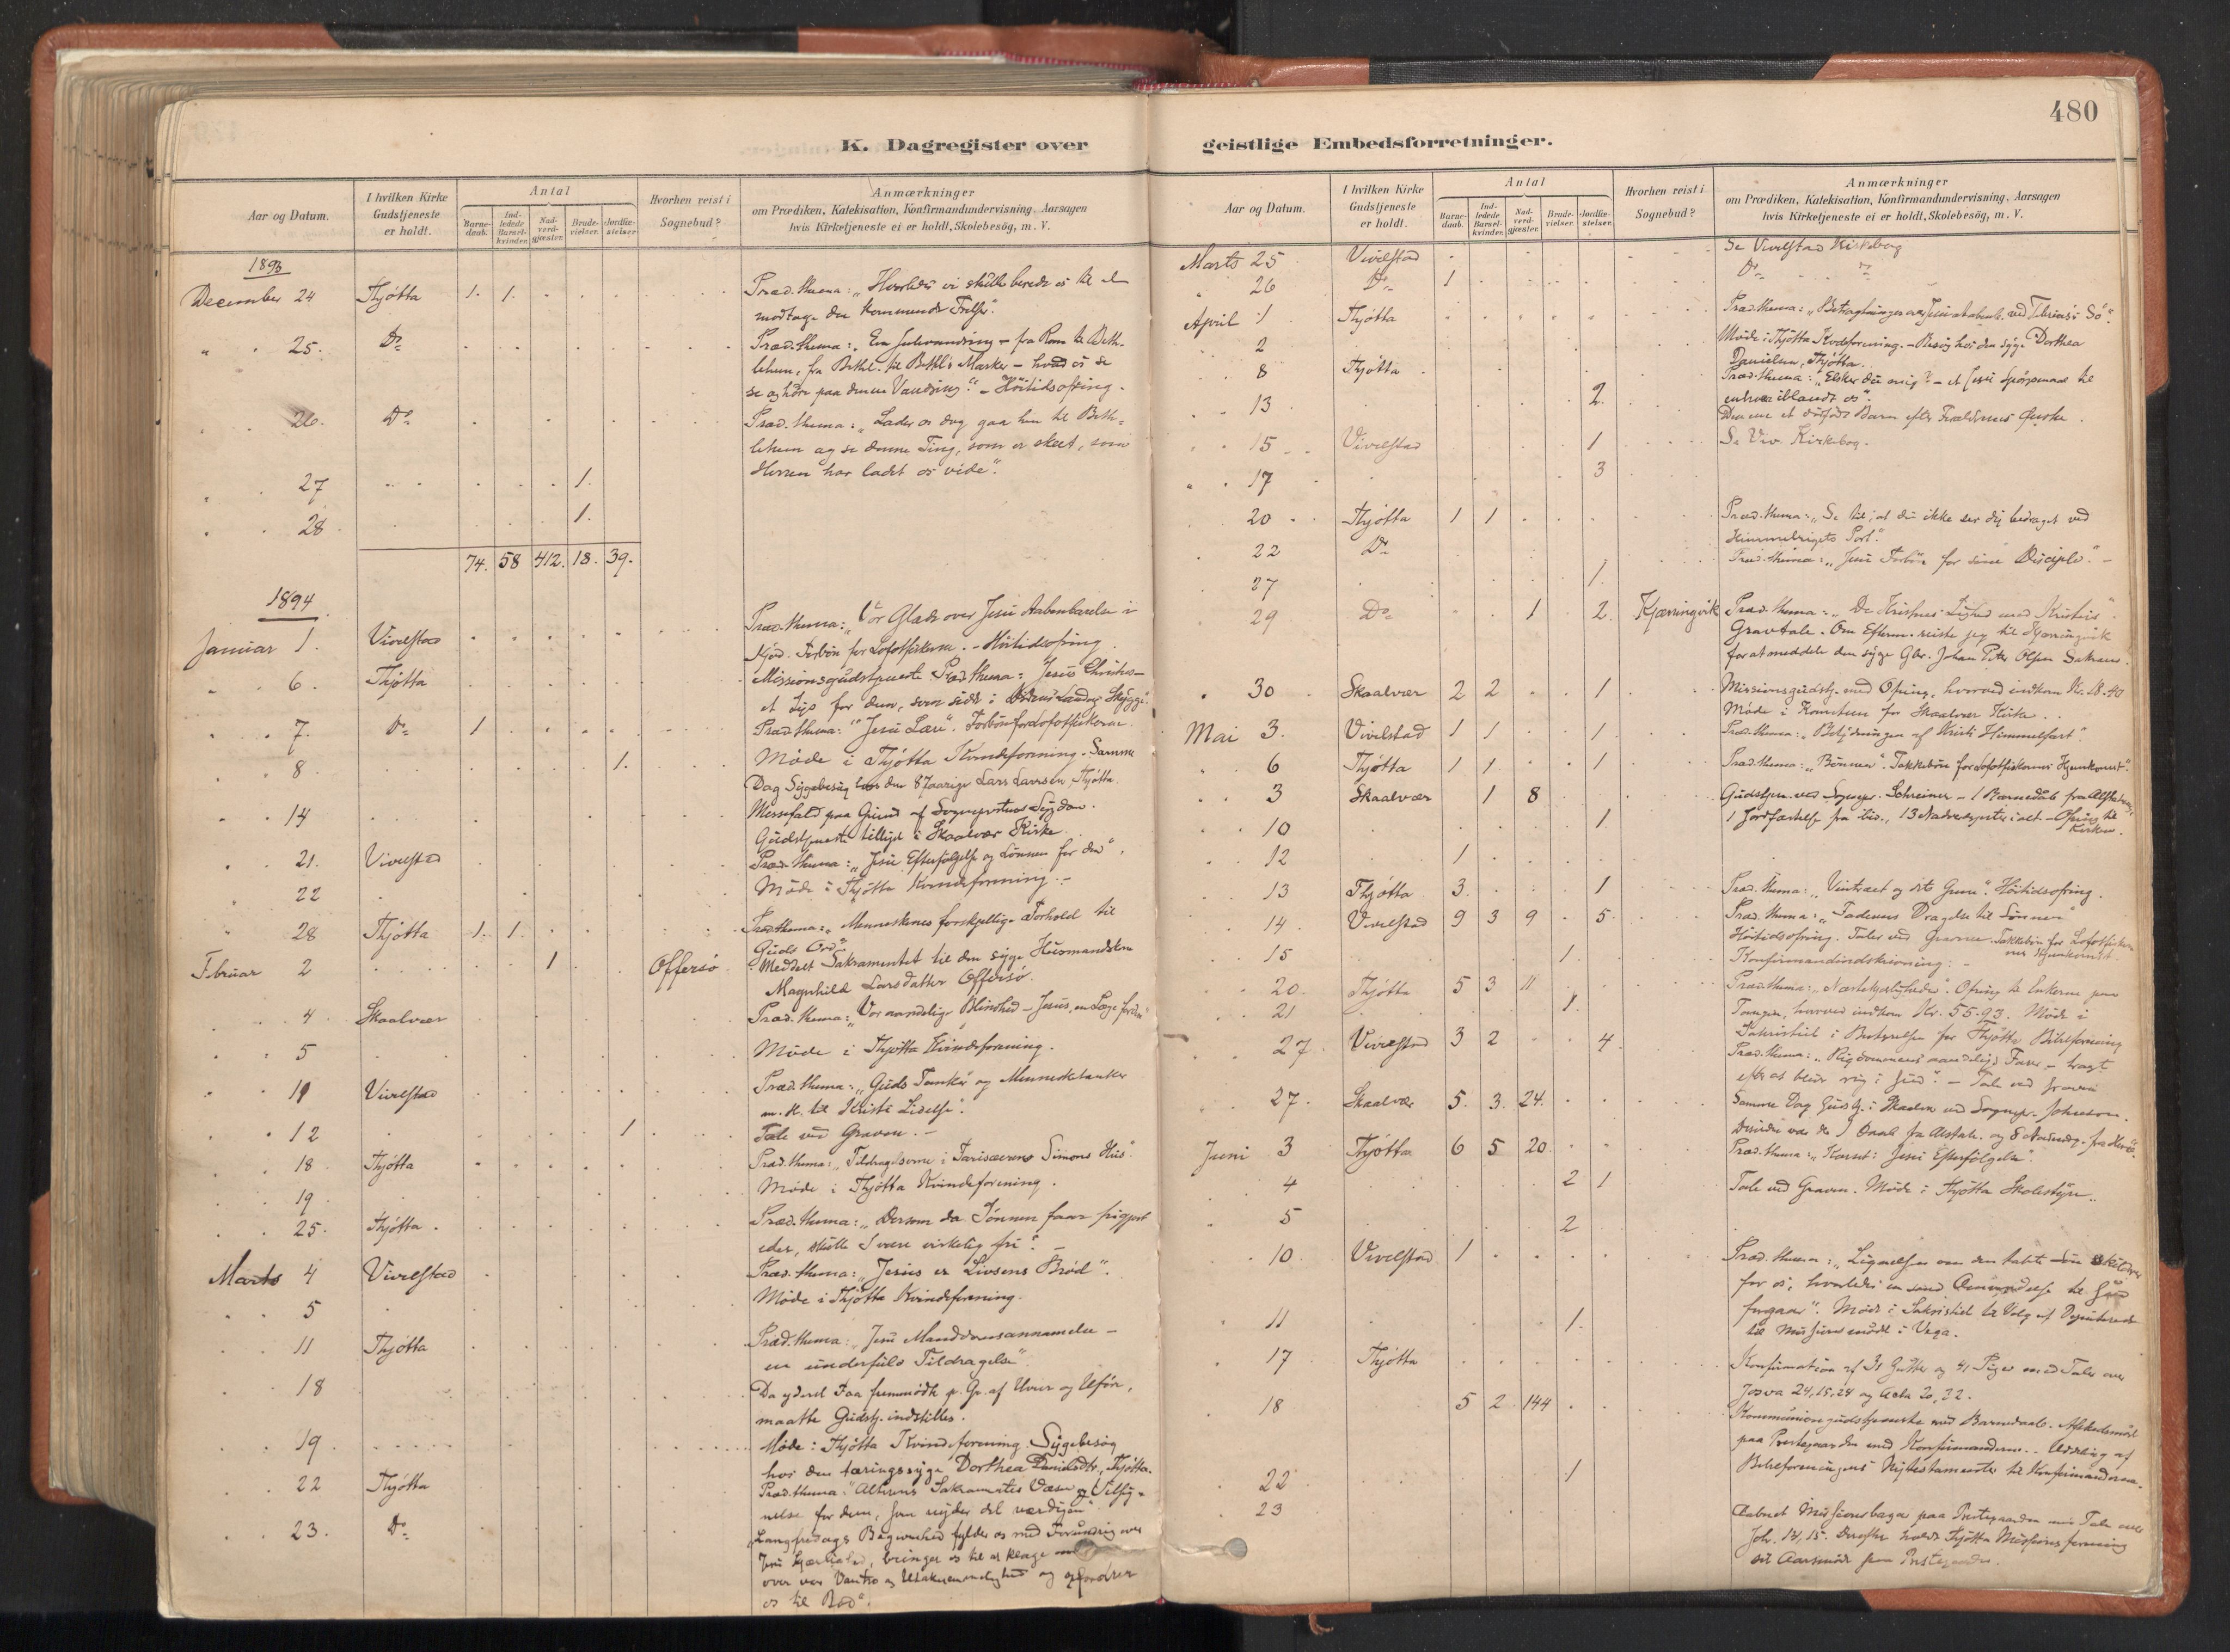 480
K. Dagregister over geistlige Embedsforretninger.
Aar og Datum. I hvilken Kirke Gudstjeneste er holdt. Antal Barnedaab. Indledede Barselkvinder. Nadverdgjæster. Brudevielser. Jordfæstelser. Hvorhen reist i Sognebud? Anmærkninger om Prædiken, Katekisation, Konfirmandundervisning, Aarsagen hvis Kirketjeneste ei er holdt, Skolebesög, m. V.
1893
December 24 Thjötta 1. 1. Præd. thema: "Hvorledes vi skulle berede os til at
modtage den kommende Frelser".
" 25. Do Præd. thema: "En Julevandring - fra Rom til Beth-
lehem, fra Bethl. til Bethl.s Marker - hvad vi
se og höre paa denne Vandring". - Höitidsofring.
" 26. Do Præd. thema: "Lader os dog gaa hen til Beth-
lehem og se denne Ting, som er skeet, som
Herren har ladet os vide".
" 27 1.
" 28 1.
74. 58 412. 18. 39.
1894
Januar 1. Vivelstad Præd. thema: "Vor Glæde over Jesu Aabenbarelse i
Kjöd. Forbön for Lofotfiskerne. - Höitidsofring.
" 6. Thjötta Missionsgudstjeneste. Præd. thema: Jesus Christus -
et Lys for dem, som sidde i Skygge".
" 7. Do 1 Præd. thema: "Jesu Lære". Forbön for Lofotfiskerne.
" 8 1. Möde i Thjötta Kvindeforening. Samme
Dag Sygebesög hos den 87aarige Lars Larsen, Thjötta.
" 14 Messefald paa Grund af Sogneprestens Sygdom.
Gudstjeneste tillyst i Skaalvær Kirke.
" 21. Vivelstad Præd. thema: "Jesu Efterfölgelse og Lönnen for den".
" 22 Möde i Thjötta Kvindeforening. -
" 28 Thjötta 1. 1. Præd. thema: "Menneskenes forskjellige Forhold til
Guds Ord".
Februar 2 1 Offersö Meddelt Sakramentet til den syge Husmandskone
Magnhild Larsdatter Offersö.
" 4 Skaalvær Præd. thema: "Vor aandelige Blindhed - Jesus, en Læge for den"
" 5 Möde i Thjötta Kvindeforening.
" 11 Vivelstad Præd. thema: "Guds Tanker og Mennesketanker
m. H. til Kristi Lidelse".
" 12 1 Tale ved Graven. -
" 18 Thjötta Præd. thema: "Tildragelserne i Farisæerens Simons Hus".
" 19 Möde i Thjötta Kvindeforening.
" 25. Thjötta. Præd. thema: "Dersom da Sönnen faar frigjort
eder, skulle I være virkelig fri".
Marts 4 Vivelstad Præd. thema: "Jesus er Livsens Bröd".
" 5 Möde i Thjötta Kvindeforening.
" 11 Thjötta Præd. thema: "Jesu Manddomsannamelse -
en underfuld Tildragelse".
" 18 Da yderst Faa fremmödte p. Gr. af Uveir og Uföre,
maatte Gudstj. indstilles.
" 19. Möde i Thjötta Kvindeforening. Sygebesög
hos den tæringssyge Dorthea Danielsdtr, Thjötta.
" 22 Thjötta Præd. thema: "Alterens Sakramentes Væsen og Velsig-
nelse for dem, som nyder det værdigen".
" 23. Do "Langfredags Begivenhed fylder os med Forundring over
Jesu Kjærlighed, bringer os til at klage
over vor Vantro og Utaknemmelighed og opfordrer
os til Bod".
Aar og Datum. I hvilken Kirke Gudstjeneste er holdt. Antal Barnedaab. Indledede Barselkvinder. Nadverdgjæster. Brudevielser. Jordfæstelser. Hvorhen reist i Sognebud? Anmærkninger om Prædiken, Katekisation, Konfirmandundervisning, Aarsagen hvis Kirketjeneste ei er holdt, Skolebesög, m. V.
Marts 25 Vivelstad Se Vivelstad Kirkebog
" 26 Do 1 Do
April 1 Thjötta Præd. thema: "Betragtninger over Jesu ved Tiberias's Sö".
" 2 Möde i Thjötta Kvdeforening. - Besög hos den syge Dorthea
Danielsen, Thjötta.
" 8 Thjötta Præd. thema: "Elsker du mig?" - et Jesu Spörgsmaal til
enhver iblandt os".
" 13 2. Den ene et dödfödt Barn efter Forældrenes Önske.
" 15 Vivelstad 1 Se Viv. Kirkebog.
" 17 3
" 20 Thjötta 1 1 Præd. thema: "Se til, at du ikke ser dig bedraget ved
Himmerigets Port".
" 22 Do Præd. thema: "Jesu Forbön for sine Disciple". -
" 27 1.
" 29 Do 1 2. Kjærringvik Præd. thema: "De Kristnes Lighed med Kristus".
Gravtale. Om Efterm. reiste jeg til Kjærringvik
for at meddele den syge Gbr. Johan Peter Olsen Sakram.
" 30 Skaalvær 2 2 1 Missionsgudstj. med Ofring, hvorved indkom Kr. 18.40
Möde i Komiteen for Skaalvær Kirke.
Mai 3. Vivelstad 1 1 1 Præd. thema: "Betydningen af Kristi Himmelfart".
" 6 Thjötta 1 1 1 Præd. thema: "Bönnen". Takkebön for Lofotfiskernes Hjemkomst".
" 3 Skaalvær 1 8 Gudstjen. ved Sognepr. Schreiner - 1 Barnedaab fra Alstahoug,
1 Jordfæstelse fra, 13 Nadverdgjester i alt. - Ofring til
Kirken.
" 10 1
" 12 1
" 13 Thjötta 3. 1 Præd. thema: "Vintræet og dets Grene". Höitidsofring.
" 14 Vivelstad 9 3 9 5. Præd. thema: "Faderens Dragelse til Sönnen".
Höitidsofring. Taler ved Gravene. Takkebön for Lofotfiskernes
Hjemkomst.
" 15 1 Konfirmandindskrivning: -
" 20. Thjötta 5 3 11 Præd. thema: "Næstekjærligheden". Ofring til Enkerne paa
" 21 1. Torngen, hvorved indkom Kr. 55.93. Möde i
Sakristiet i Bestyrelsen for Thjötta Bibelforening
" 27. Vivelstad 3 2 4. Præd. thema: "Rigdommens aandelige Farer - tragt
efter at blive rig i Gud". - Tale ved Graven
" 27. Skaalvær 5. 3. 24. Samme Dag Gudstj. i Skaalvær ved Sognepr. Johnson.
Desuden var der 1 Daab fra Alstah. og 8 Nadverdg. fra Herö.
Juni 3 Thjötta 6 5 20 Præd. thema: "Korset: Jesu Efterfölgelse".
" 4 2 1 Tale ved Graven. Möde i Thjötta Skolestyre.
" 5 2
" 10 Vivelstad 1 Præd. thema: "Lignelsen om den tabte Sön skildrer
for os, hvorledes en sand Omvendelse til Gud
foregaar". Möde i Sakristiet til Valg af Deputerede
til Missionsmödet i Vega.
" 11 1.
" 17 Thjötta Konfirmation af 31 Gutter og 41 Piger med Tale over
Josva 24,15,24 og Acta 20,32.
" 18 5 2 144 Kommuniongudstjeneste med Barnedaab. Afskedsmöde
paa Prestegaarden med Konfirmanderne. Uddeling af
Bibelforeningens Nytestamenter til Konfirmanderne.
" 22 1
" 23 Aabnet Missionsbazar paa Prestegaarden med Tale over
Joh. 14,15. Derefter holdt Thjötta Missionsforening
sit Aarsmöde paa Prestegaarden.